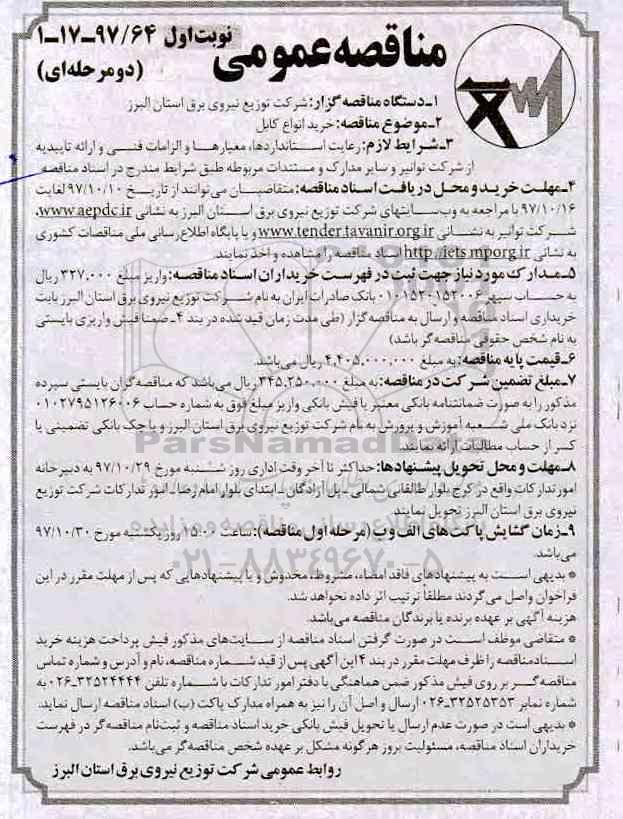 مناقصه عمومی
نوبت اول ۹۷/۶۴-۱۷-۱
(دو مرحله‌ای)
۱ـ دستگاه مناقصه گزار: شرکت توزیع نیروی برق استان البرز
۲ـ موضوع مناقصه: خرید انواع کابل
۳ـ شرایط لازم: رعایت استانداردها، معیارها و الزامات فنی و ارائه تاییدیه
از شرکت توانیر و سایر مدارک و مستندات مربوطه طبق شرایط مندرج در اسناد مناقصه
۴ـ مهلت خرید و محل دریافت اسناد مناقصه: متقاضیان می‌توانند از تاریخ ۹۷/۱۰/۱۰ لغایت
۹۷/۱۰/۱۶ با مراجعه به وب‌سایتهای شرکت توزیع نیروی برق استان البرز به نشانی www.aepdc.ir،
شرکت توانیر به نشانی www.tender.tavanir.org.ir و یا پایگاه اطلاع‌رسانی ملی مناقصات کشوری
به نشانی http://iets.mporg.ir اسناد مناقصه را مشاهده و اخذ نمایند.
۵ـ مدارک مورد نیاز جهت ثبت در فهرست خریداران اسناد مناقصه: واریز مبلغ ۳۲۷,۰۰۰ ریال
به حساب سپهر ۰۱۰۱۵۲۰۱۵۲۰۰۶ بانک صادرات ایران به نام شرکت توزیع نیروی برق استان البرز بابت
خریداری اسناد مناقصه و ارسال به مناقصه گزار (طی مدت زمان قید شده در بند ۴ ـ ضمنا فیش واریزی بایستی
به نام شخص حقوقی مناقصه گر باشد)
۶ـ قیمت پایه مناقصه: به مبلغ ۴,۴۰۵,۰۰۰,۰۰۰ ریال می‌باشد.
۷ـ مبلغ تضمین شرکت در مناقصه: به مبلغ ۳۴۵,۲۵۰,۰۰۰ ریال می‌باشد که مناقصه گران بایستی سپرده
مذکور را به صورت ضمانتنامه بانکی معتبر یا فیش بانکی واریز مبلغ فوق به شماره حساب ۰۱۰۲۷۹۵۱۲۶۰۰۶
نزد بانک ملی شعبه آموزش و پرورش به نام شرکت توزیع نیروی برق استان البرز و یا چک بانکی تضمینی یا
کسر از حساب مطالبات ارائه نمایند.
۸ـ مهلت و محل تحویل پیشنهادها: حداکثر تا آخر وقت اداری روز شنبه مورخ ۹۷/۱۰/۲۹ به دبیرخانه
امور تدارکات واقع در کرج بلوار طالقانی شمالی ـ پل آزادگان ـ ابتدای بلوار امام رضا ـ امور تدارکات شرکت توزیع
نیروی برق استان البرز تحویل نمایند.
۹ـ زمان گشایش پاکت‌های الف و ب (مرحله اول مناقصه): ساعت ۱۵:۰۶ روز یکشنبه مورخ ۹۷/۱۰/۳۰
می‌باشد.
* بدیهی است به پیشنهادهای فاقد امضاء، مشروط، مخدوش و یا پیشنهادهایی که پس از مهلت مقرر در این
فراخوان واصل می‌گردند مطلقاً ترتیب اثر داده نخواهد شد.
هزینه آگهی بر عهده برنده یا برندگان مناقصه می‌باشد.
* متقاضی موظف است در صورت گرفتن اسناد مناقصه از سایت‌های مذکور فیش پرداخت هزینه خرید
اسناد مناقصه را ظرف مهلت مقرر در بند ۴ این آگهی پس از قید شماره مناقصه، نام و آدرس و شماره تماس
مناقصه‌گر بر روی فیش مذکور ضمن هماهنگی با دفتر امور تدارکات با شماره تلفن ۳۲۵۲۴۴۴۴-۰۲۶ به
شماره نمابر ۳۲۵۲۵۳۵۳-۰۲۶ ارسال و اصل آن را نیز به همراه مدارک پاکت (ب) اسناد مناقصه ارسال نماید.
* بدیهی است در صورت عدم ارسال یا تحویل فیش بانکی خرید اسناد مناقصه و ثبت‌نام مناقصه‌گر در فهرست
خریداران اسناد مناقصه، مسئولیت بروز هرگونه مشکل بر عهده شخص مناقصه‌گر می‌باشد.
روابط عمومی شرکت توزیع نیروی برق استان البرز
ParsNamadData
۰۲۱-۸۸۳۴۹۶۷۰-۵